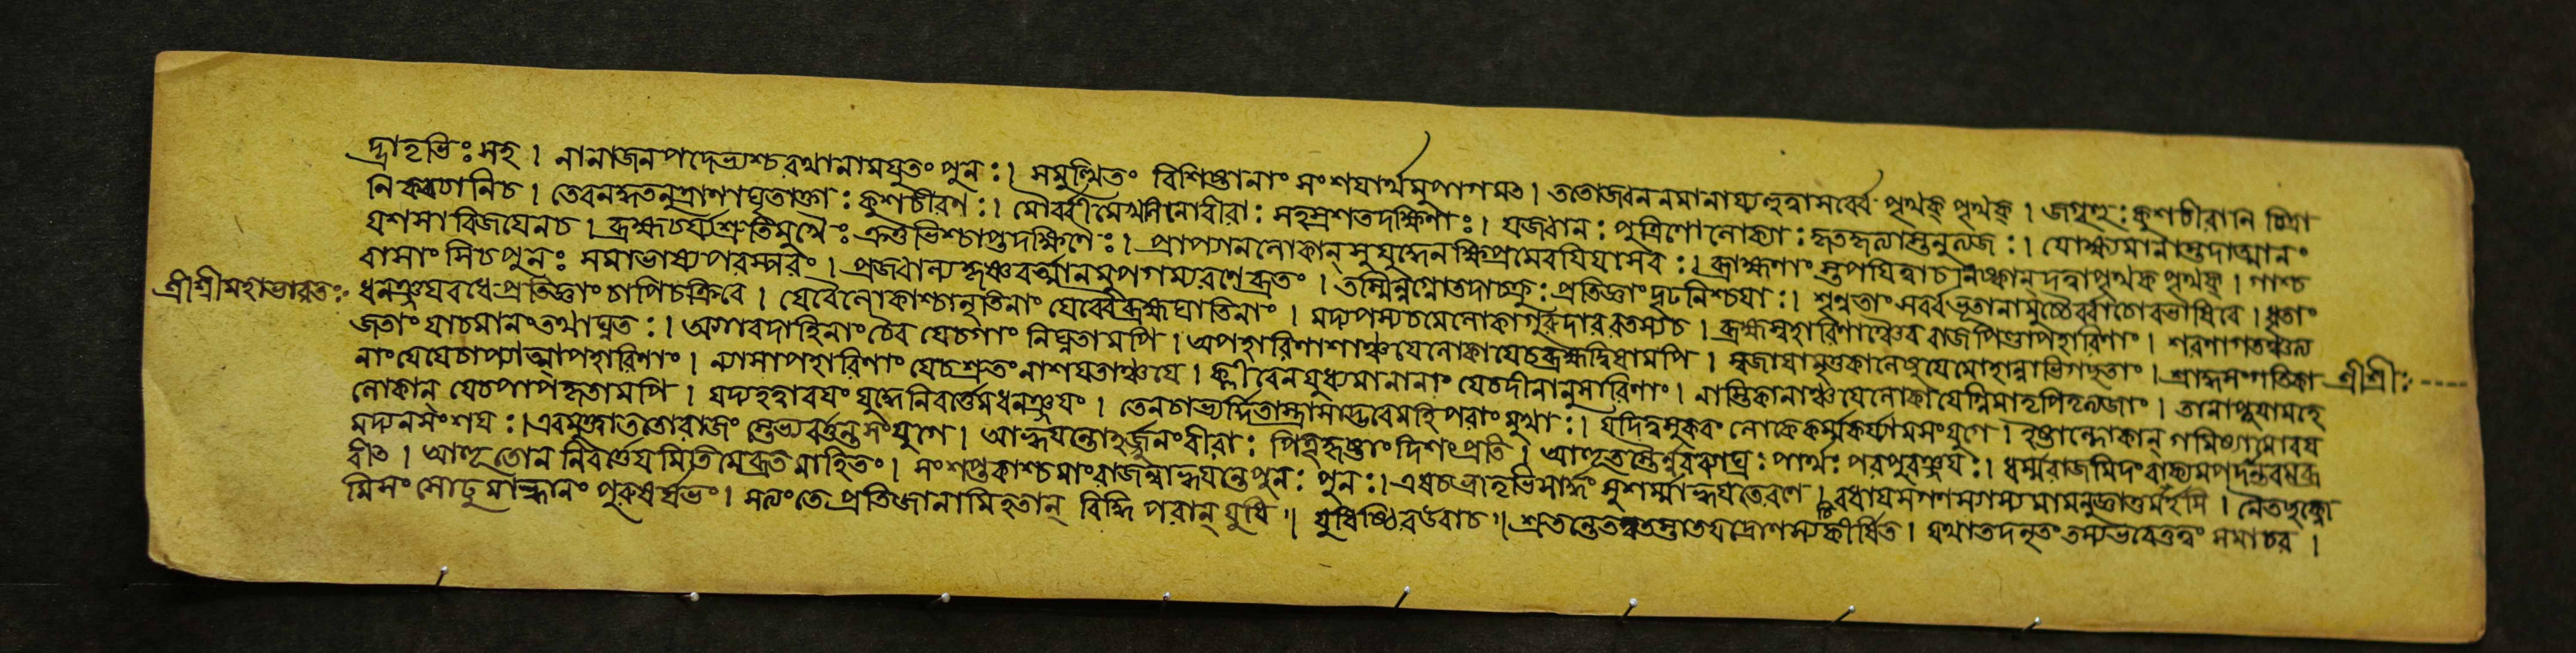 দ্ভ্রাতৃভিঃ সহ । নানাজনপদেভ্যশ্চরথানামযুতং পুনঃ । সমুত্থিতং বিশিষ্টানাং সংশযার্থমুপাগমত । ততোজ্বলনমানায্যহুত্বাসর্ব্বে পৃথক্ পৃথক্ । জগৃহুঃ কুশচীরানি চিত্রা
নি কবচানিচ । তেবদ্ধতনুত্রাণাঘৃতাক্তাঃ কুশচীরিণঃ । মৌর্ব্বীমেখলিনোবীরাঃ সহস্রশতদক্ষিণাঃ । যজ্বানঃ পুত্রিণোলোক্যাঃ কৃতকৃত্যাস্তনুত্যজঃ । যোক্ষ্যমানাস্তদাত্মানং
যশসাবিজযেনচ । ব্রহ্মচর্য্যশ্রুতিমুখৈঃ ক্রতুভিশ্চাপ্তদক্ষিণৈঃ । প্রাপ্যানলোকান্ সুযুদ্ধেনক্ষিপ্রমেবযিযাসবঃ । ব্রাহ্মণাং স্তর্পযিত্বাচনিষ্কান্ দত্বাপৃথক্ পৃথক্ । গাশ্চ
বাসাংসিচপুনঃ সমাভাষ্যপরস্পরং । প্রজ্বাল্যকৃষ্ণবর্ত্মানমুপগম্যরণেব্রতং । তস্মিন্নগ্নৌতদাচক্রুঃ প্রতিজ্ঞাং দৃঢনিশ্চযাঃ । শৃন্বতাং সর্ব্বভূতানামুচ্চৈর্ব্বাচোবভাষিরে । ধৃতাং
শ্রীশ্রীমহাভারতঃ ধনঞ্জযবধেপ্রতিজ্ঞাং চাপিচক্রিরে । যেবৈলোকাশ্চানৃতিনাং যেবৈব্রহ্মঘাতিনাং । মদ্যপস্যচমেলোকাগুরুদাররতস্যচ । ব্রহ্মস্বহারিণাঞ্চৈব রাজপিণ্ডাপহারিণাং । শরণাগতঞ্চত্য
জতাং যাচমানংতথাঘ্নতঃ । অগারদাহিনাং চৈব যেচগাং নিঘ্নতামপি । অপহারিণাশাঞ্চযেলোকাযেচব্রহ্মদ্বিষামপি । স্বজাযামৃতুকালেষুযেমোহান্নাভিগচ্ছতাং । শ্রাদ্ধসংগতিকা শ্রীশ্রীঃ
নাং যেযেচাপ্যাত্মাপহারিণাং । ন্যাসাপহারিণাং যেচশ্রুতং নাশযতাঞ্চযে । ক্লীবেনযুধ্যমানানাং যেচদীনানুসারিণাং । নাস্তিকানাঞ্চযেলোকাযেগ্নিমাতৃপিতৃত্যজাং । তানাপ্নুযামহে
লোকান্ যেচপাপকৃতামপি । যদ্যহত্বাবযং যুদ্ধেনিবর্ত্তেমধনঞ্জযং । তেনচাভ্যর্দ্দিতাস্ত্রাসাদ্ভবেমহিপরাংমুখাঃ । যদিত্বসুকরং লোকেকর্ম্মকুর্য্যামসংযুগে । ইষ্টাল্লোকান্ গমিষ্যামোবয
মদ্যনসংশযঃ । এবমুক্ত্বাততোরাজং স্তেভ্যবর্ত্তন্তসংযুগে । আহ্বযন্তোর্জ্জুনংবীরাঃ পিতৃজুষ্টাং দিশংপ্রতি । আহূতস্তৈর্নরব্যাঘ্রঃ পার্থঃ পরপুরঞ্জযঃ । ধর্ম্মরাজমিদংবাক্যমপদান্তরমব্র
বীত । আহূতোন নিবর্ত্তেযমিতিমেব্রতমাহিতং । সংশপ্তকাশ্চমাংরাজন্নাহ্বযন্তেপুনঃ পুনঃ । এষচভ্রাতৃভিঃসার্দ্ধং সুশর্ম্মাহ্বযতেরণে । বধাযসগণস্যাস্যমামনুজ্ঞাতুমর্হসি । নৈতচ্ছক্নো
মিসংসোঢুমাহ্বানং পুরুষর্ষভং । সত্যংতে প্রতিজানামিহতান্ বিদ্ধি পরান্ যুধি ॥ যুধিষ্ঠিরউবাচ ॥ শ্রুতন্তেতত্বতস্তাতযদ্দ্রোণস্যচিকীর্ষিত । যথাতদনৃতং তস্যভবেত্তত্বং সমাচর ।